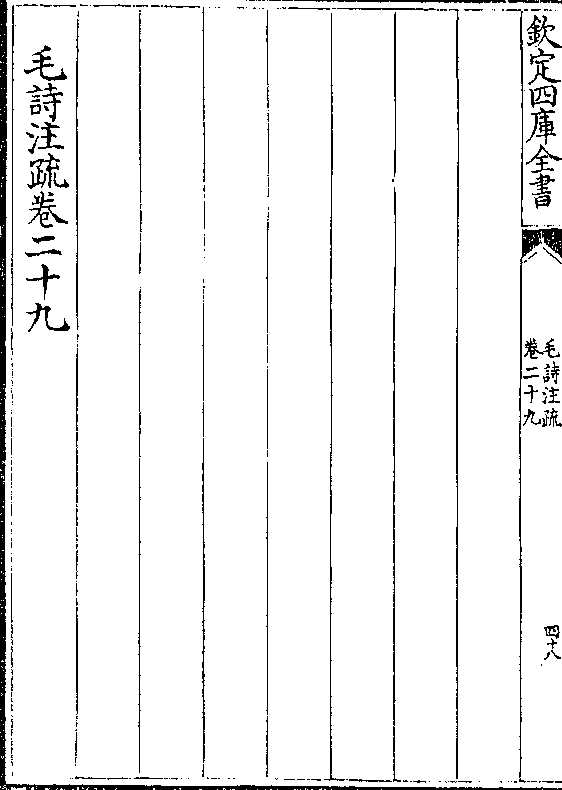 欽定四庫全書
毛詩注疏
卷二十九
四十八
毛詩注疏卷二十九